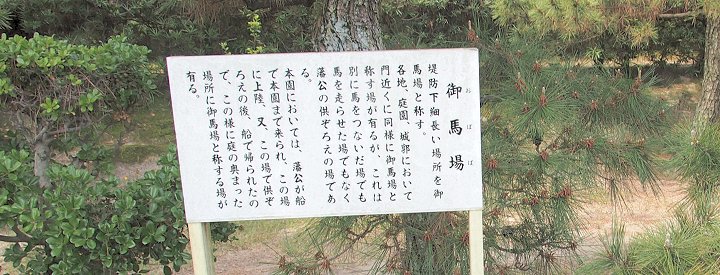 御馬場
おばば
堤防下細長い場所を御
馬場と称す。
各地、庭園、城郭において
門近くに同様に御馬場と
称す場が有るが、これは
別に馬をつないだ場でも
馬を走らせた場でもなく
藩公の供ぞろえの場であ
る。
本園においては、藩公が船
で本園まで来られ、この場
に上陸、又、この場で供ぞ
ろえの後、船で帰られたの
で、この様に庭の奥まった
場所に御馬場と称する場が
有る。